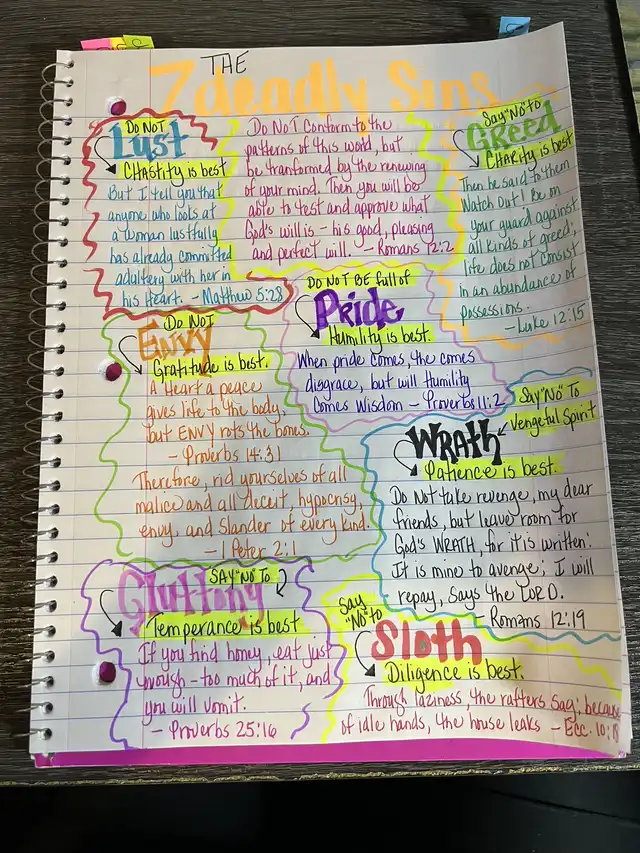 THE
7 deadly Sins
DO NOT
Lust
CHASTITY is best
But I tell you that
anyone who looks at
a woman lustfully
has already committed
adultery with her in
his Heart. - Matthew 5:28
Do NOT Conform to the
patterns of this world, but
be tranformed by the renewing
of your mind. Then you will be
able to test and approve what
God's will is - his good, pleasing
and perfect will. - Romans 12:2
Say "No" to
GREED
CHARITY is best
Then he said to them
Watch Out! Be on
your guard against
all kinds of greed;
life does not consist
in an abundance of
possessions.
- Luke 12:15
Do NOT
ENVY
Gratitude is best.
A Heart a peace
gives life to the body,
but ENVY rots the bones.
- Proverbs 14:31
Therefore, rid yourselves of all
malice and all deceit, hypocrisy,
envy, and Slander of every kind.
- 1 Peter 2:1
DO NOT BE full of
Pride
Humility is best.
When pride comes, the comes
disgrace, but will Humility
Comes Wisdom - Proverbs 11:2
Say "No" To
Vengeful Spirit
WRATH
Patience is best.
Do Not take revenge, my dear
friends, but leave room for
God's WRATH, for it is written:
It is mine to avenge; I will
repay, Says the LORD.
- Romans 12:19
SAY "NO" To
Gluttony
Temperance is best
If you find honey, eat just
enough - too much of it, and
you will vomit.
- Proverbs 25:16
Say
"No" to
Sloth
Diligence is best.
Through laziness, the rafters Sag; because
of idle hands, the house leaks - Ecc. 10:18